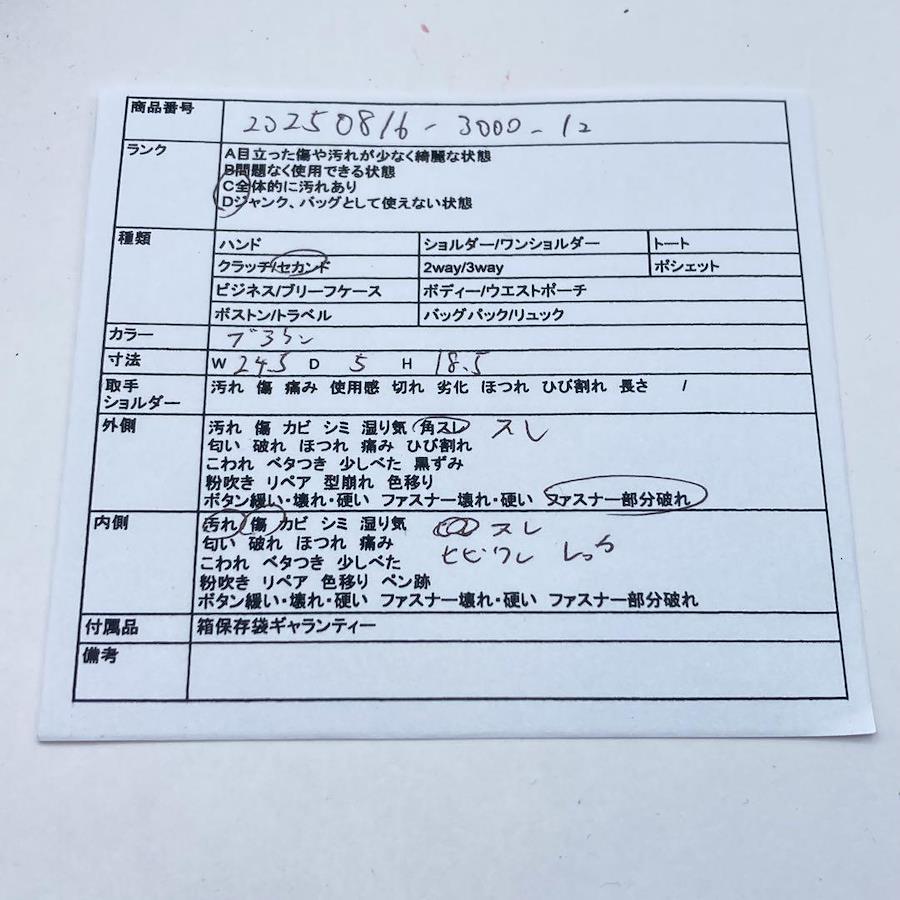 商品番号 20250816-3000-12
ランク A目立った傷や汚れが少なく綺麗な状態
B問題なく使用できる状態
C全体的に汚れあり
Dジャンク、バッグとして使えない状態
種類 ハンド ショルダー/ワンショルダー トート
クラッチ/セカンド 2way/3way ポシェット
ビジネス/ブリーフケース ボディー/ウエストポーチ
ボストン/トラベル バッグパック/リュック
カラー ブラウン
寸法 W 24.5 D 5 H 18.5
取手 汚れ 傷 痛み 使用感 切れ 劣化 ほつれ ひび割れ 長さ /
ショルダー
外側 汚れ 傷 カビ シミ 湿り気 角スレ スレ
匂い 破れ ほつれ 痛み ひび割れ
こわれ ベタつき 少しべた 黒ずみ
粉吹き リペア 型崩れ 色移り
ボタン緩い・壊れ・硬い ファスナー壊れ・硬い ファスナー部分破れ
内側 汚れ 傷 カビ シミ 湿り気 スレ
匂い 破れ ほつれ 痛み ヒビワレ
こわれ ベタつき 少しべた
粉吹き リペア 色移り ペン跡
ボタン緩い・壊れ・硬い ファスナー壊れ・硬い ファスナー部分破れ
付属品 箱保存袋ギャランティー
備考